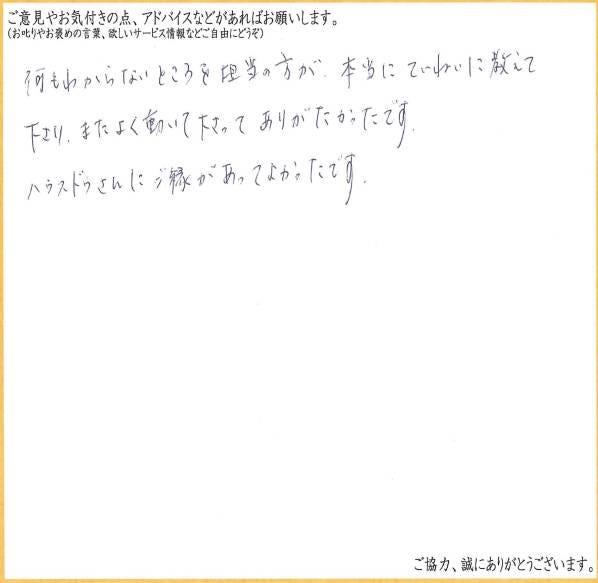 ご意見やお気付きの点、アドバイスなどがあればお願いします。
(お叱りやお褒めの言葉、欲しいサービス情報などご自由にどうぞ)
何もわからないところを担当の方が、本当にていねいに教えて
下さり、またよく動いて下さって ありがたかったです。
ハウスドゥさんに ご縁があってよかったです。
ご協力、誠にありがとうございます。